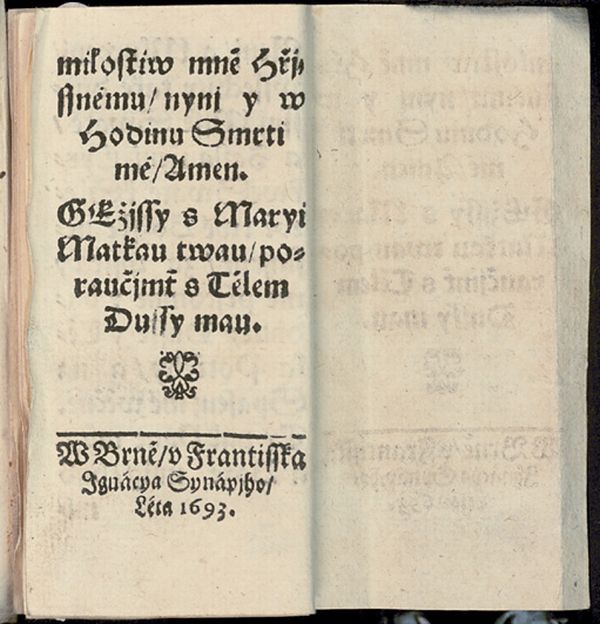 milostiw mně Hřj-
ssnému/ nynj y w
Hodinu Smrti
mé/ Amen.
GEžissy s Maryi
Matkau twau/ po-
raučjmť s Tělem
Dussy mau.
W Brně/ v Frantisska
Ignácya Synápjho/
Léta 1693.